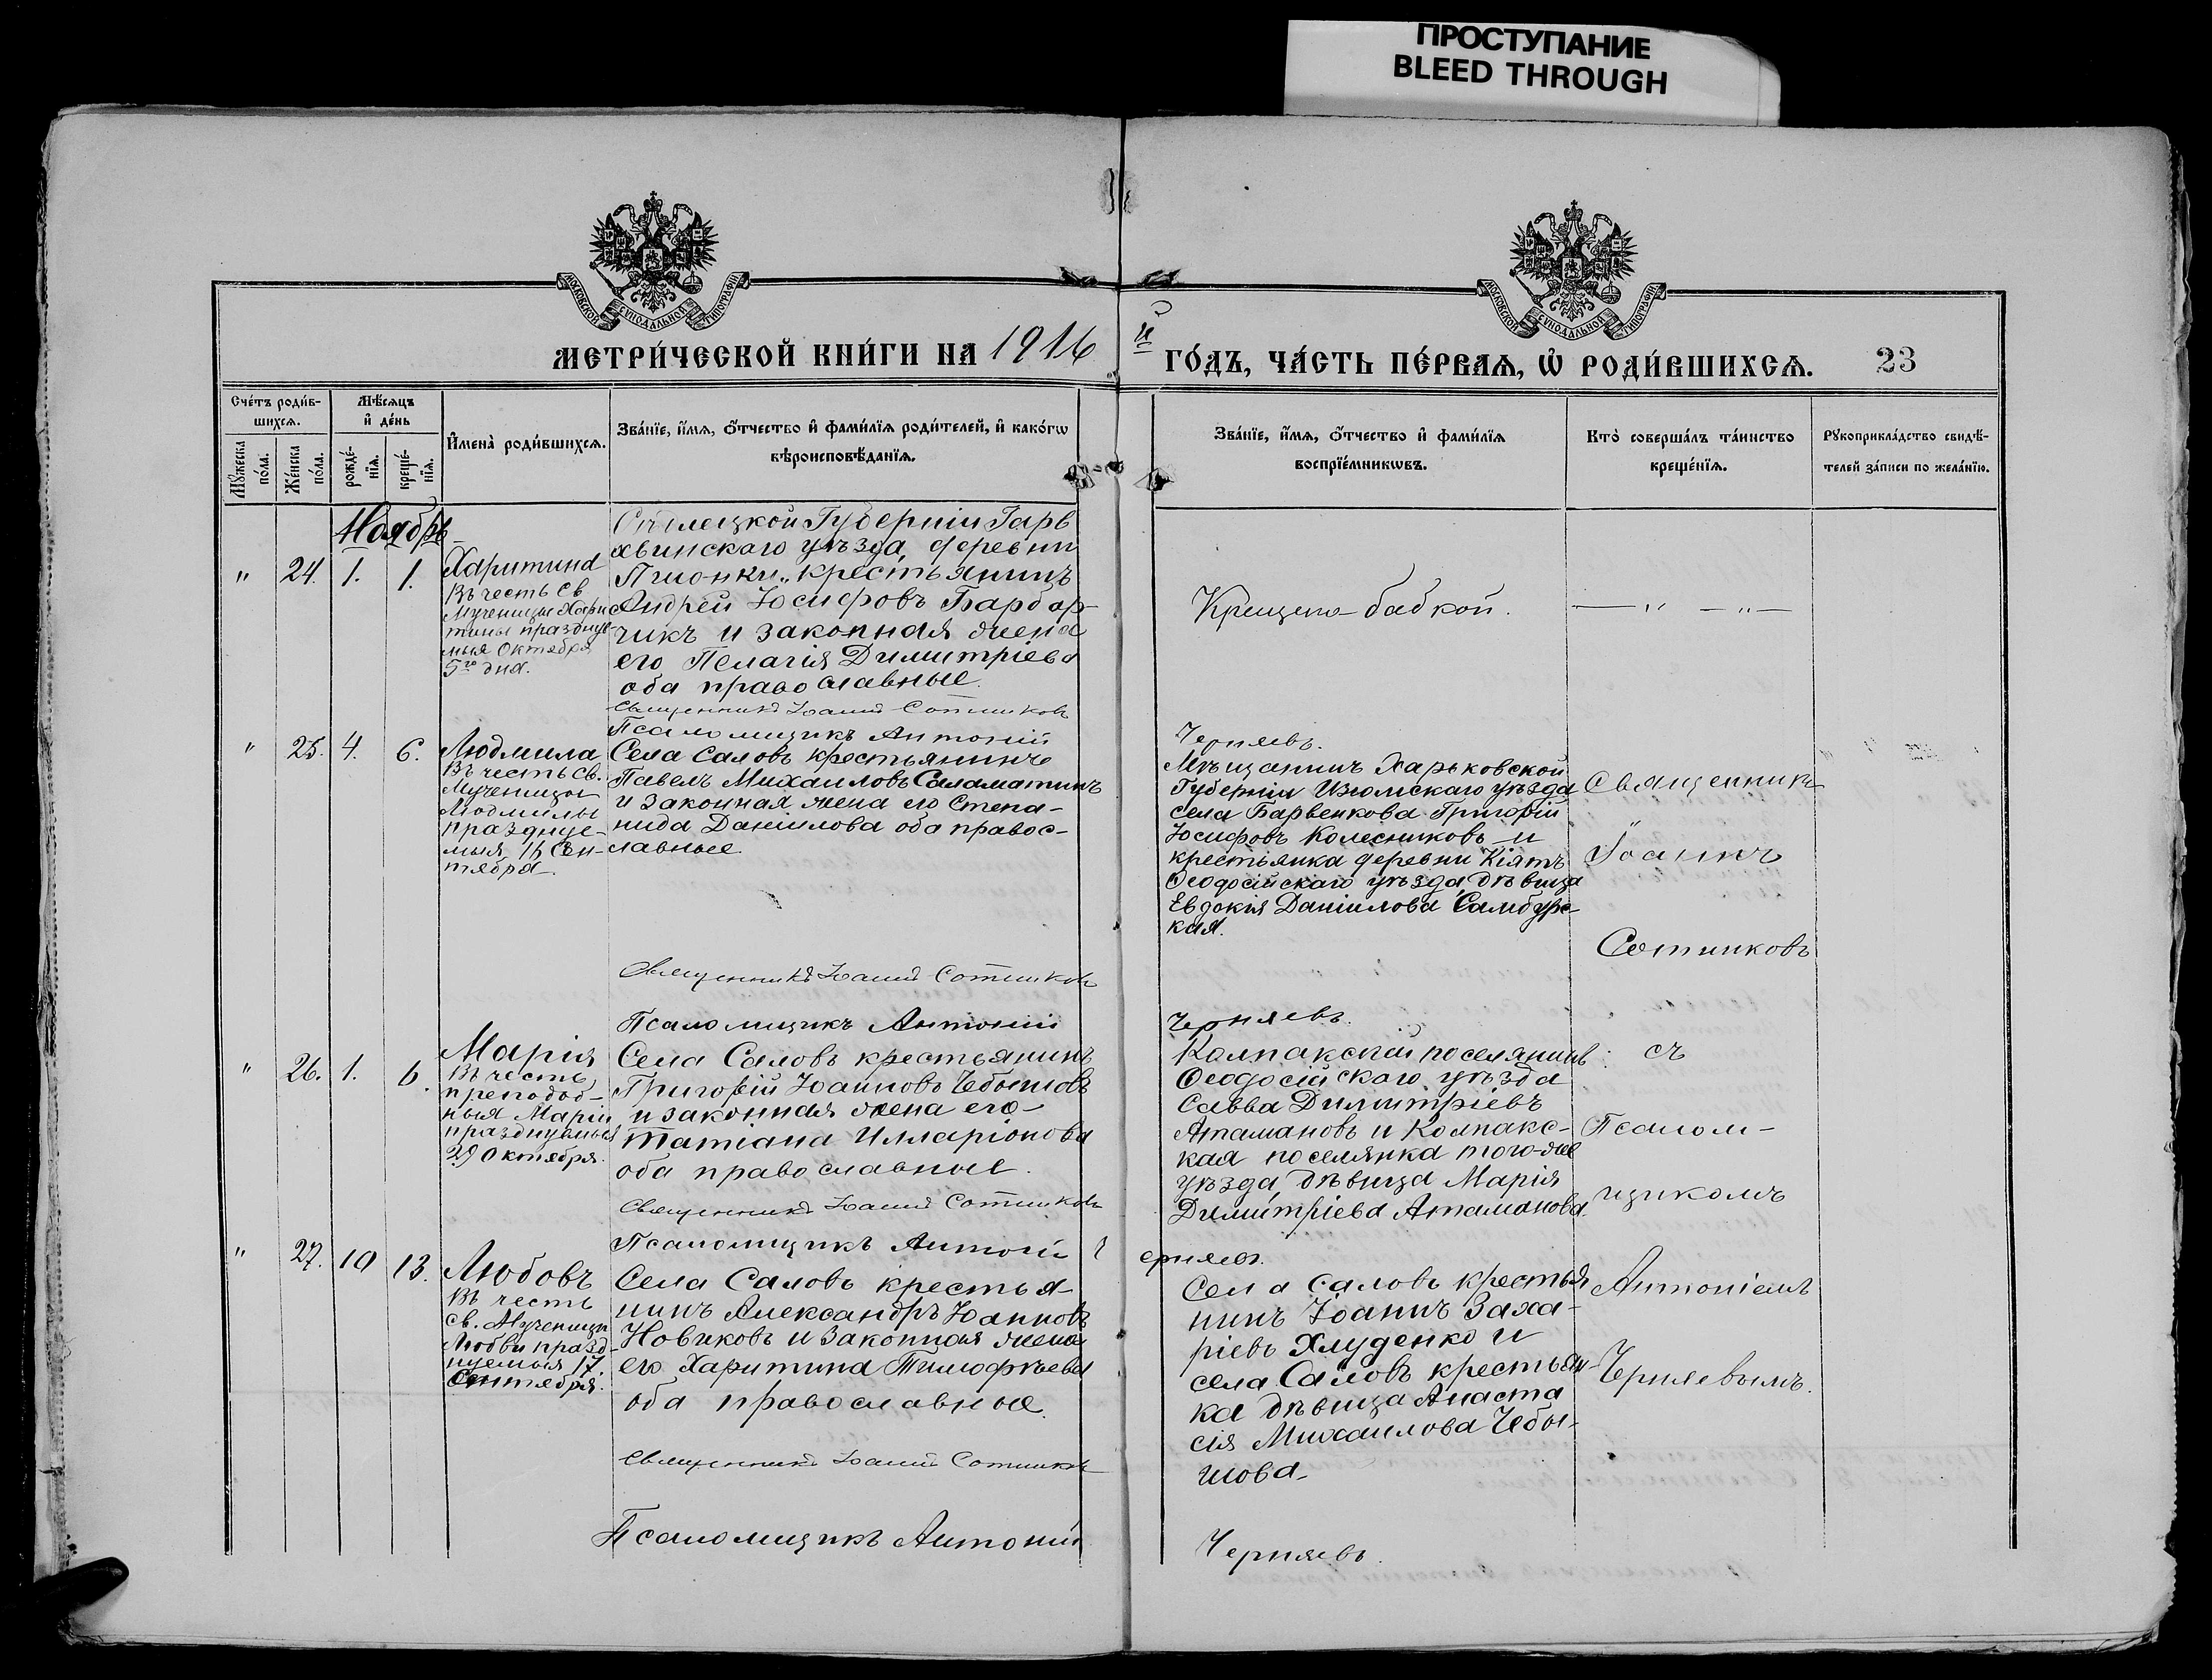 ПРОСТУПАНИЕ
BLEED THROUGH
МОСКОВСКОЙ СѴНОДАЛЬНОЙ ТИПОГРАФІИ
МОСКОВСКОЙ СѴНОДАЛЬНОЙ ТИПОГРАФІИ
МЕТРИ́ЧЕСКОЙ КНИ́ГИ НА 1916 й
ГО́ДЪ, ЧА́СТЬ ПЕ́РВАѦ, Ѡ҆ РОДИ́ВШИХСѦ. 23
Сче́тъ роди́в-
шихсѧ.
Мꙋжеска по́ла.
Же́нска по́ла.
Мѣ́сѧцъ
и҆ де́нь
рожде́-
нїѧ.
креще́-
нїѧ.
И҆мена̀ роди́вшихсѧ.
Зва́нїе, и҆́мѧ, ѻ҆́тчество и҆ фами́лїѧ роди́телей, и҆ како́гѡ
вѣроисповѣ́данїѧ.
Зва́нїе, и҆́мѧ, ѻ҆́тчество и҆ фами́лїѧ
воспрїе́мникѡвъ.
Кто̀ соверша́лъ та́инство
креще́нїѧ.
Рꙋкоприкла́дство свидѣ́-
телей за́писи по жела́нїю.
Ноябрь
" 24. 1. 1.
Харитина
Въ честь св
Мученицы Хари
тины празднуе-
мыя Октября
5го дня.
Сѣдлецкой Губерніи Гарв
хвинскаго уѣзда, деревни
Пионки, крестьянинъ
Андрей Іосифовъ Барбар-
чикъ и законная жена
его Пелагія Димитріева
оба православные.
Священникъ Іоаннъ Сотниковъ
Псаломщикъ Антоній
Крещена бабкой.
— " — " —
Черняевъ.
" 25. 4. 6.
Людмила
Въ честь св.
Мученицы
Людмилы
празднуе-
мыя 16 Сен-
тября
Села Саловъ крестьянинъ
Павелъ Михаиловъ Саламатинъ
и законная жена его Степа-
нида Даніилова оба правос-
лавные.
Священникъ Іоаннъ Сотниковъ
Псаломщикъ Антоній
Мѣщанинъ Харьковской
Губерніи Изюмскаго уѣзда
села Барвенкова Григорій
Іосифовъ Колесниковъ и
крестьянка деревни Кіятъ
Ѳеодосійскаго уѣзда, дѣвица
Евдокія Даніилова Самбурс-
кая.
Черняевъ.
Священникъ
Іоаннъ
Сотниковъ
съ
Псалом-
щикомъ
Антоніемъ
Черняевымъ.
" 26. 1. 6.
Марія
Въ честь
преподоб-
ныя Маріи
празднуемыя
29 Октября.
Села Саловъ крестьянинъ
Григорій Іоанновъ Чебышовъ
и законная жена его
Татіана Илларіонова
оба православные.
Священникъ Іоаннъ Сотниковъ
Псаломщикъ Антоній Ч
ерняевъ.
Колпакскій поселянинъ
Ѳеодосійскаго уѣзда
Савва Димитріевъ
Атамановъ и Колпакс-
кая поселянка того-же
уѣзда, дѣвица Марія
Димитріева Атаманова.
" 27. 10 13.
Любовь
Въ честь
св. Мученицы
Любви празд-
нуемыя 17.
Сентября.
Села Саловъ крестья-
нинъ Александръ Іоанновъ
Новиковъ и законная жена
его Харитина Тимофѣева
оба православные.
Священникъ Іоаннъ Сотниковъ
Псаломщикъ Антоній
Села Саловъ крестья
нинъ Іоаннъ Заха-
ріевъ Хлуденко и
села Саловъ крестьян-
ка дѣвица Анаста
сія Михаилова Чебы-
шова
Черняевъ.